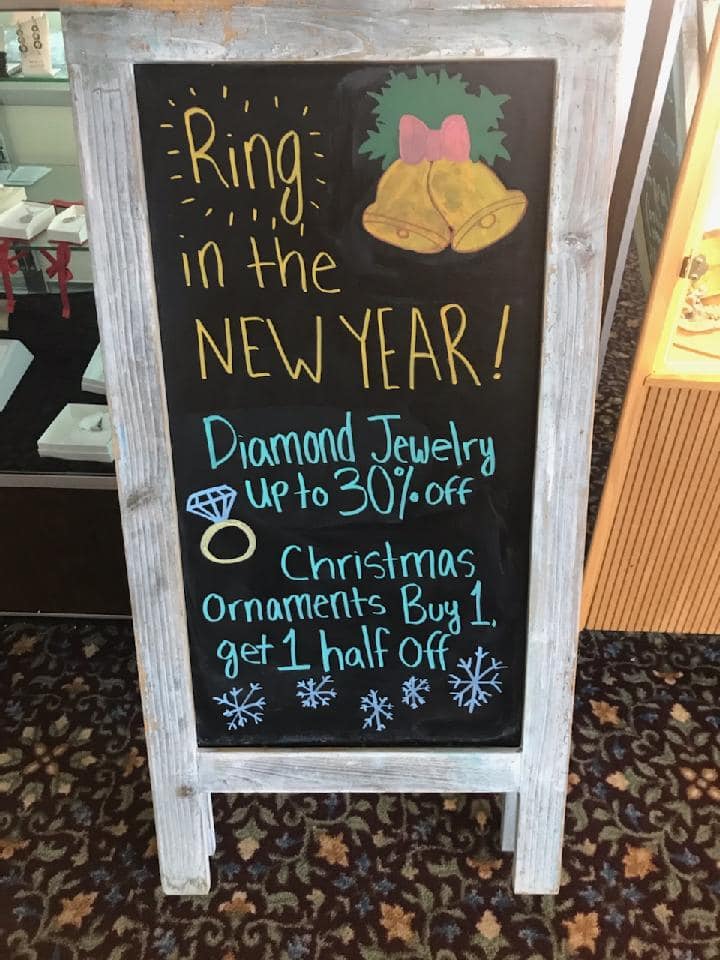 Ring
in the
NEW YEAR!
Diamond Jewelry
up to 30% off
Christmas
Ornaments Buy 1,
get 1 half off